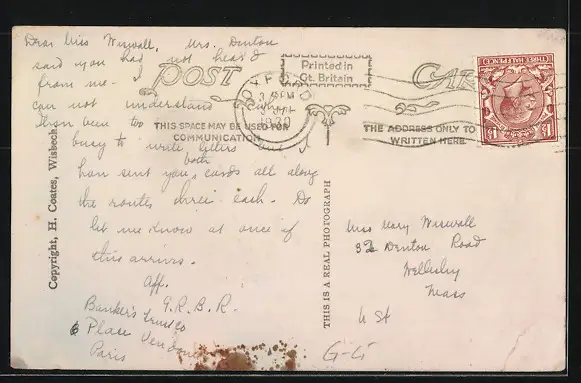 Dear Miss Wiswall, Mrs. Denton
said you had not heard
from me - I
can not understand why
been too
busy to write letters but I
have sent you both cards all along
the route, three each. Do
let me know at once if
this arrives.
Aff.
G.R.B.R.
Bankers Trust Co
6 Place Vendome
Paris
POST CARD
Printed in
Gt. Britain
THIS SPACE MAY BE USED FOR
COMMUNICATION
THE ADDRESS ONLY TO
WRITTEN HERE
OXFORD
1930
THREE HALFPENCE
Copyright, H. Coates, Wisbech
THIS IS A REAL PHOTOGRAPH
Miss Mary Wiswall
32 Denton Road
Wellesley
Mass
USA